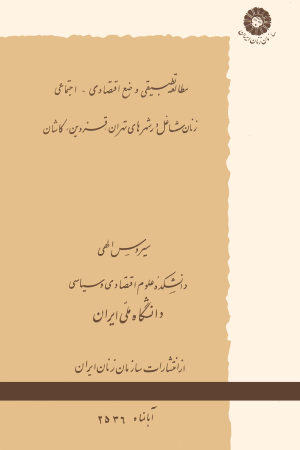 سازمان زنان ایران
مطالعه تطبیقی وضع اقتصادی - اجتماعی
زنان شاغل در شهرهای تهران، قزوین، کاشان
سیروس الهی
دانشکده علوم اقتصادی و سیاسی
دانشگاه ملی ایران
از انتشارات سازمان زنان ایران
آبانماه ۲۵۳۶